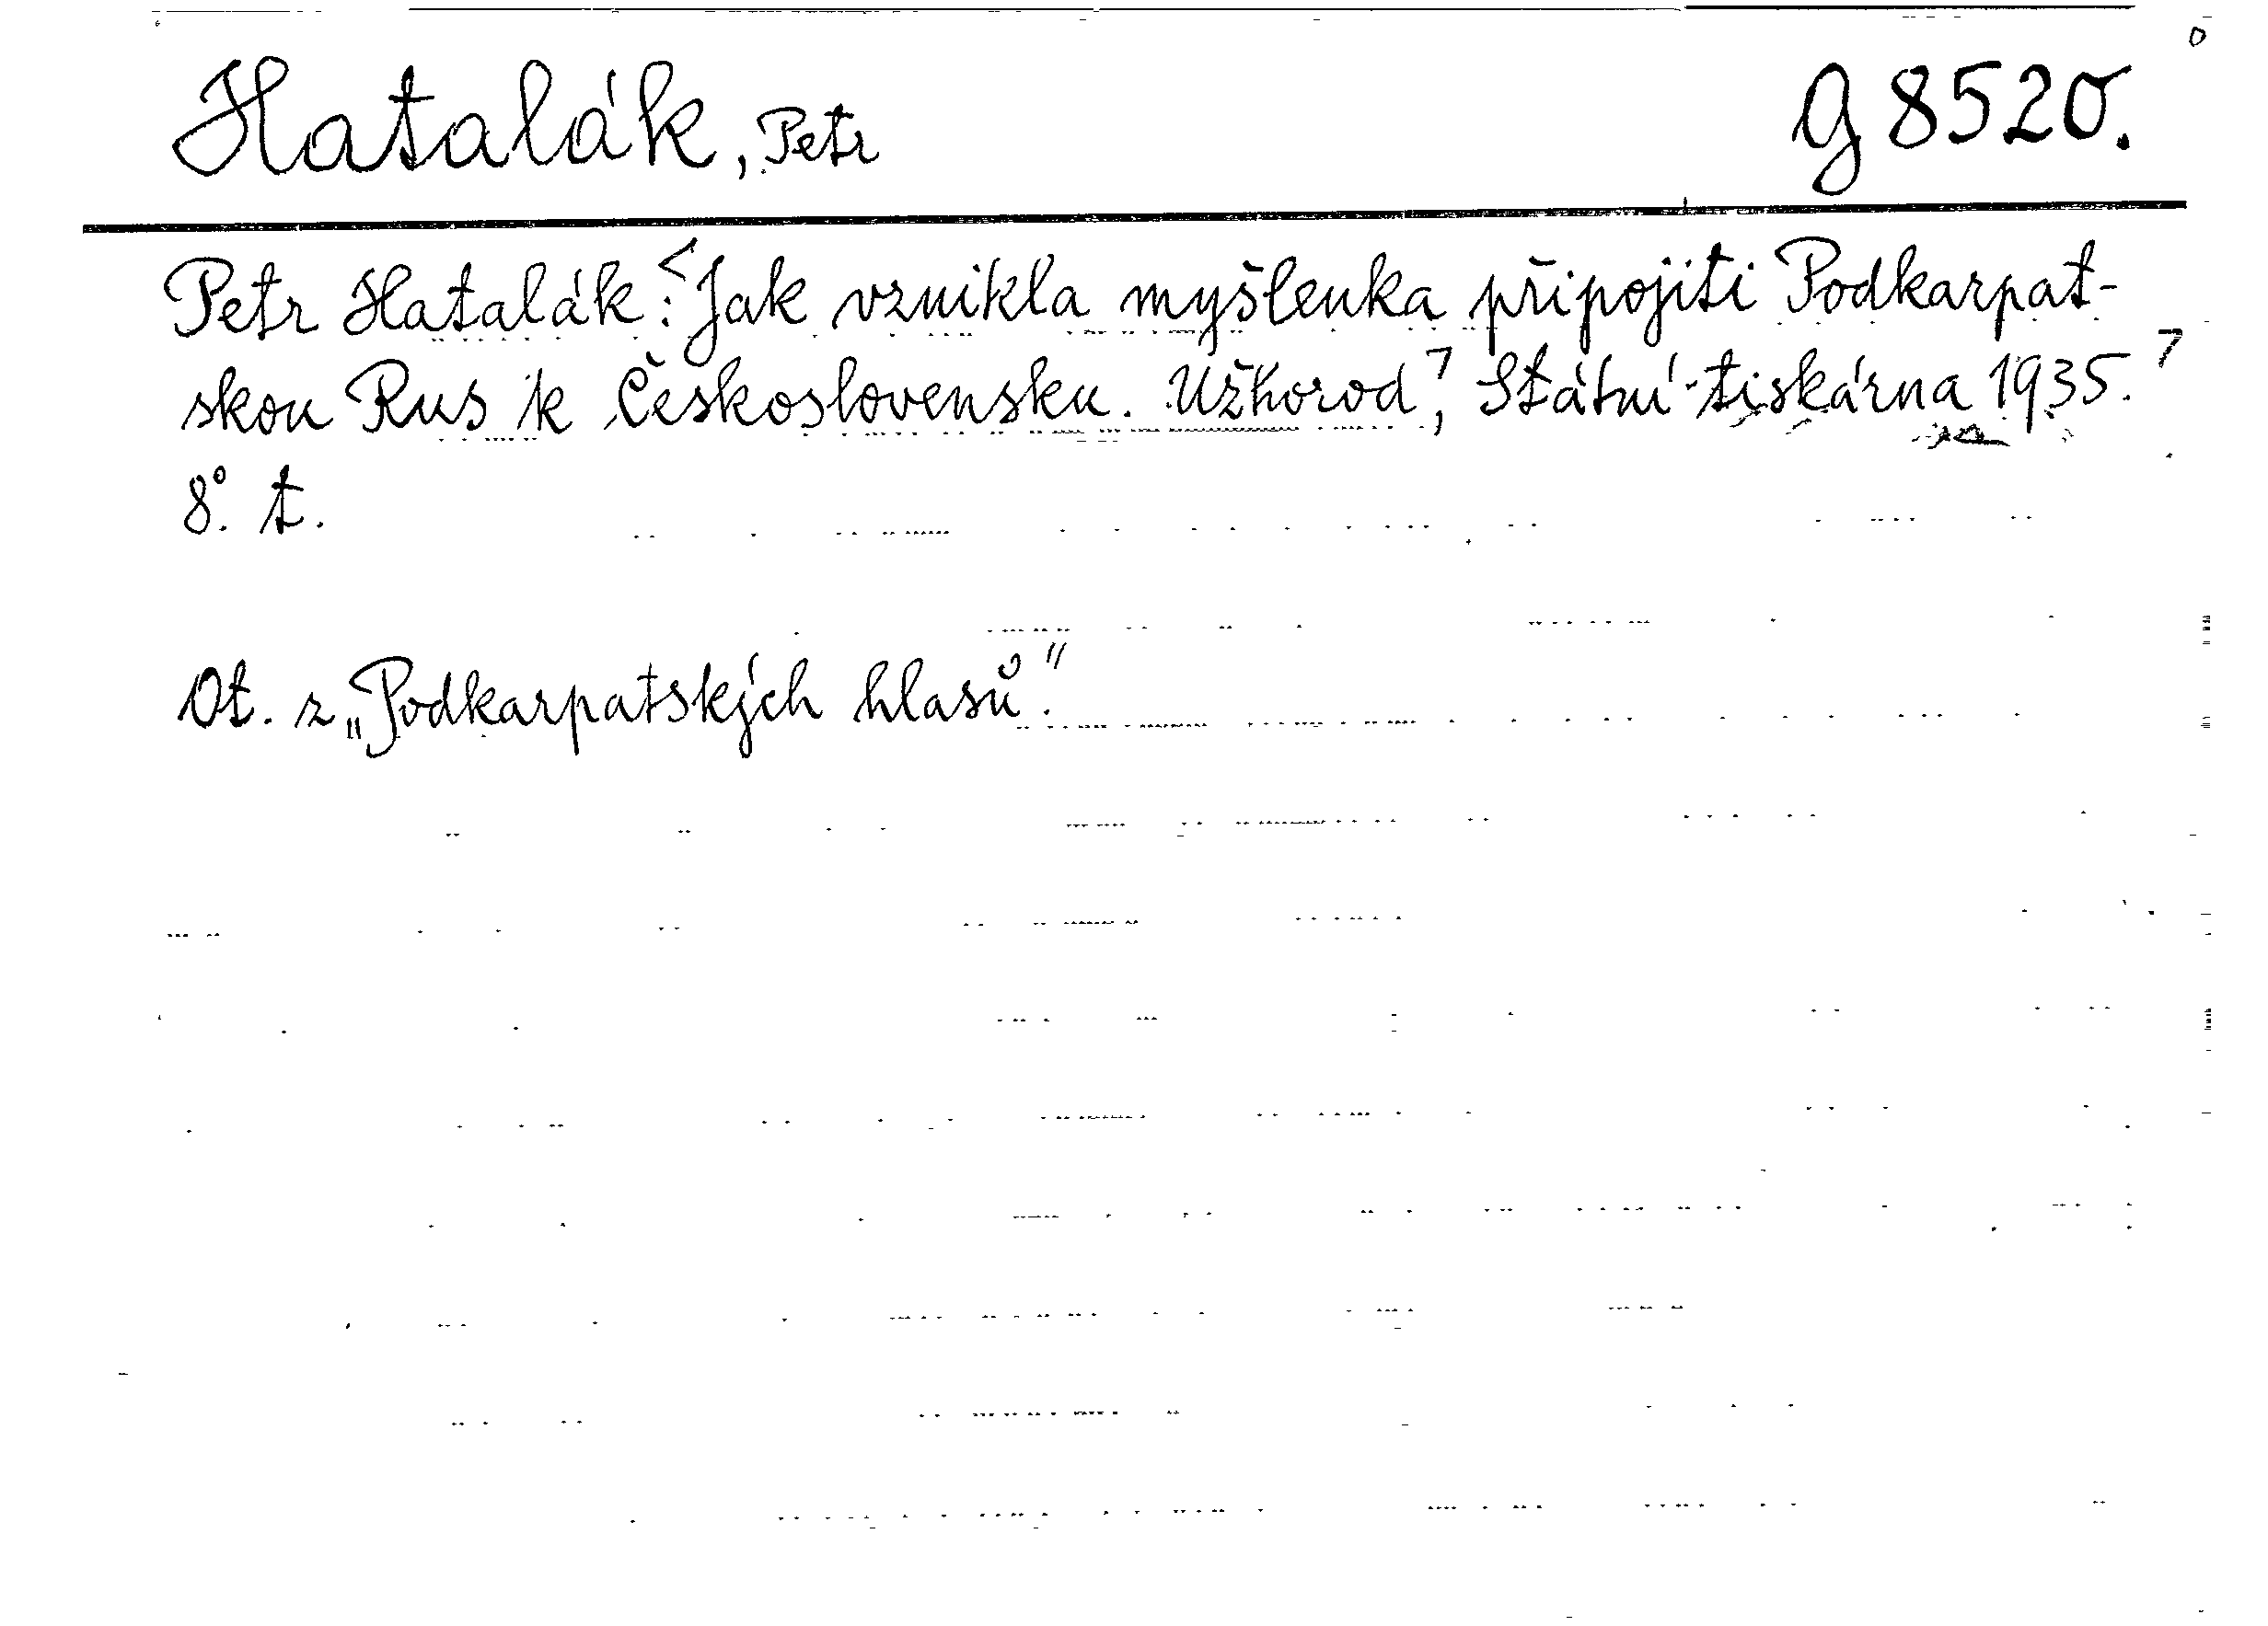 Hatalák, Petr G 8520.
Petr Hatalák: Jak vznikla myšlenka připojiti Podkarpat-
skou Rus k Československu. Užhorod, Státní tiskárna 1935.
8°. t.
Ot. z „Podkarpatských hlasů."